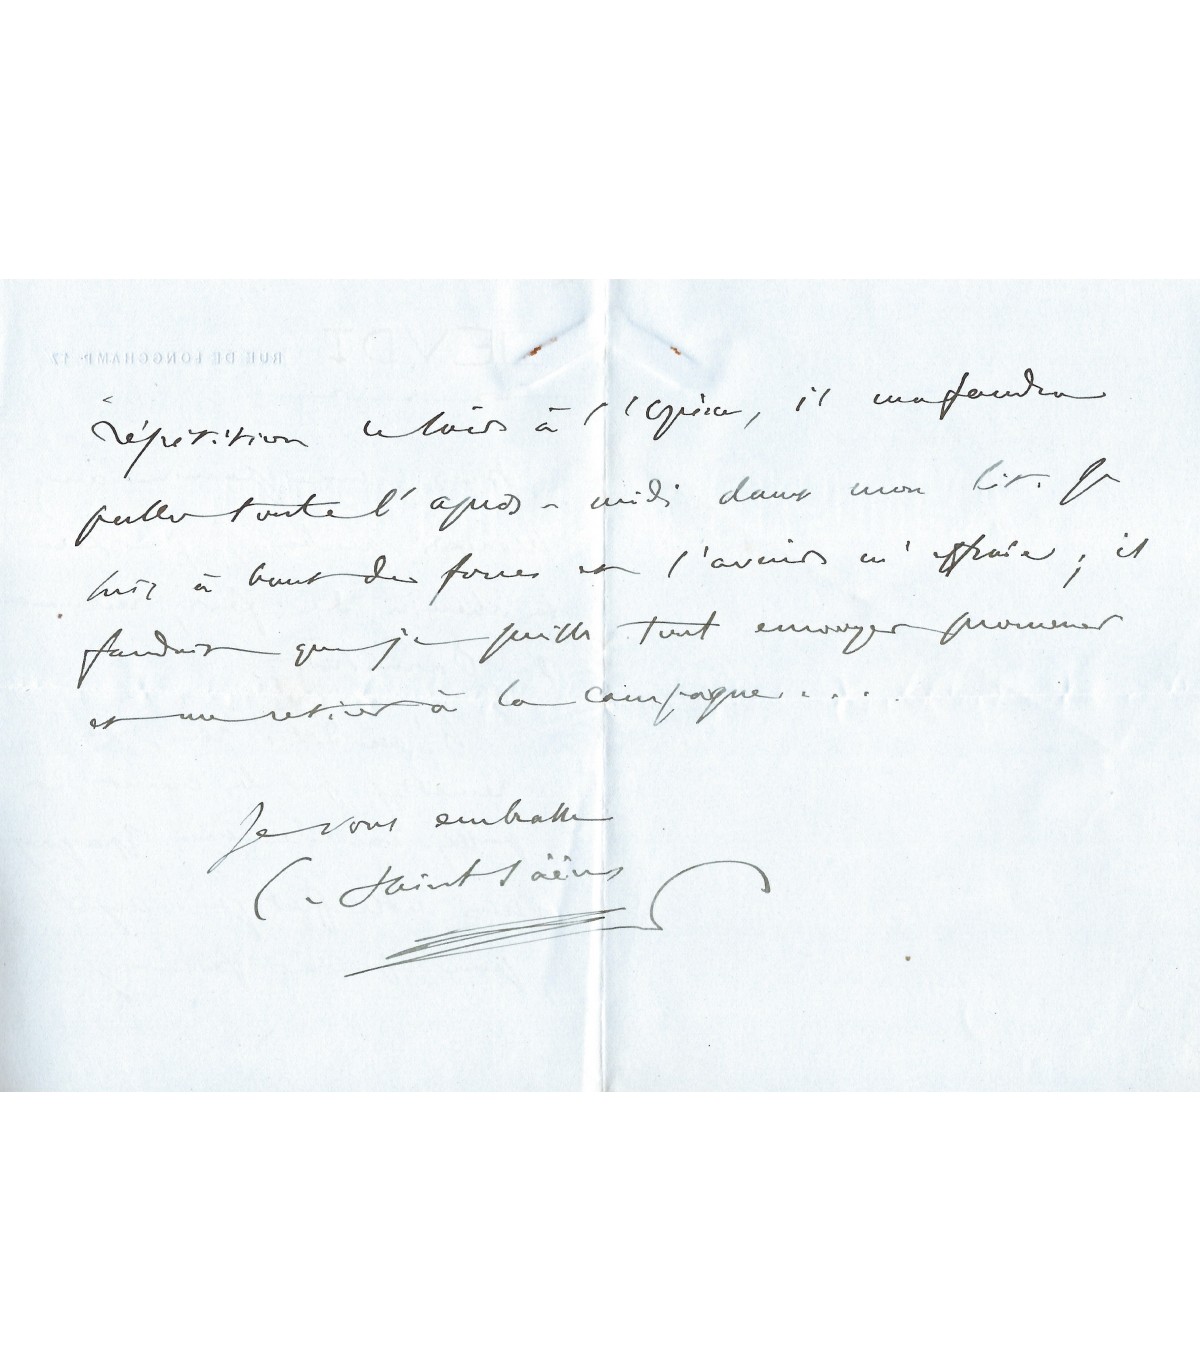 RUE DE LONGCHAMP. 17
répétition ce soir à l'Opéra, il me faudra
passer toute l'après-midi dans mon lit. Je
suis à bout de forces et l'avenir m'effraie ; il
faudrait que je puisse tout envoyer promener
et me retirer à la campagne....
Je vous embrasse
C. Saint-Saëns